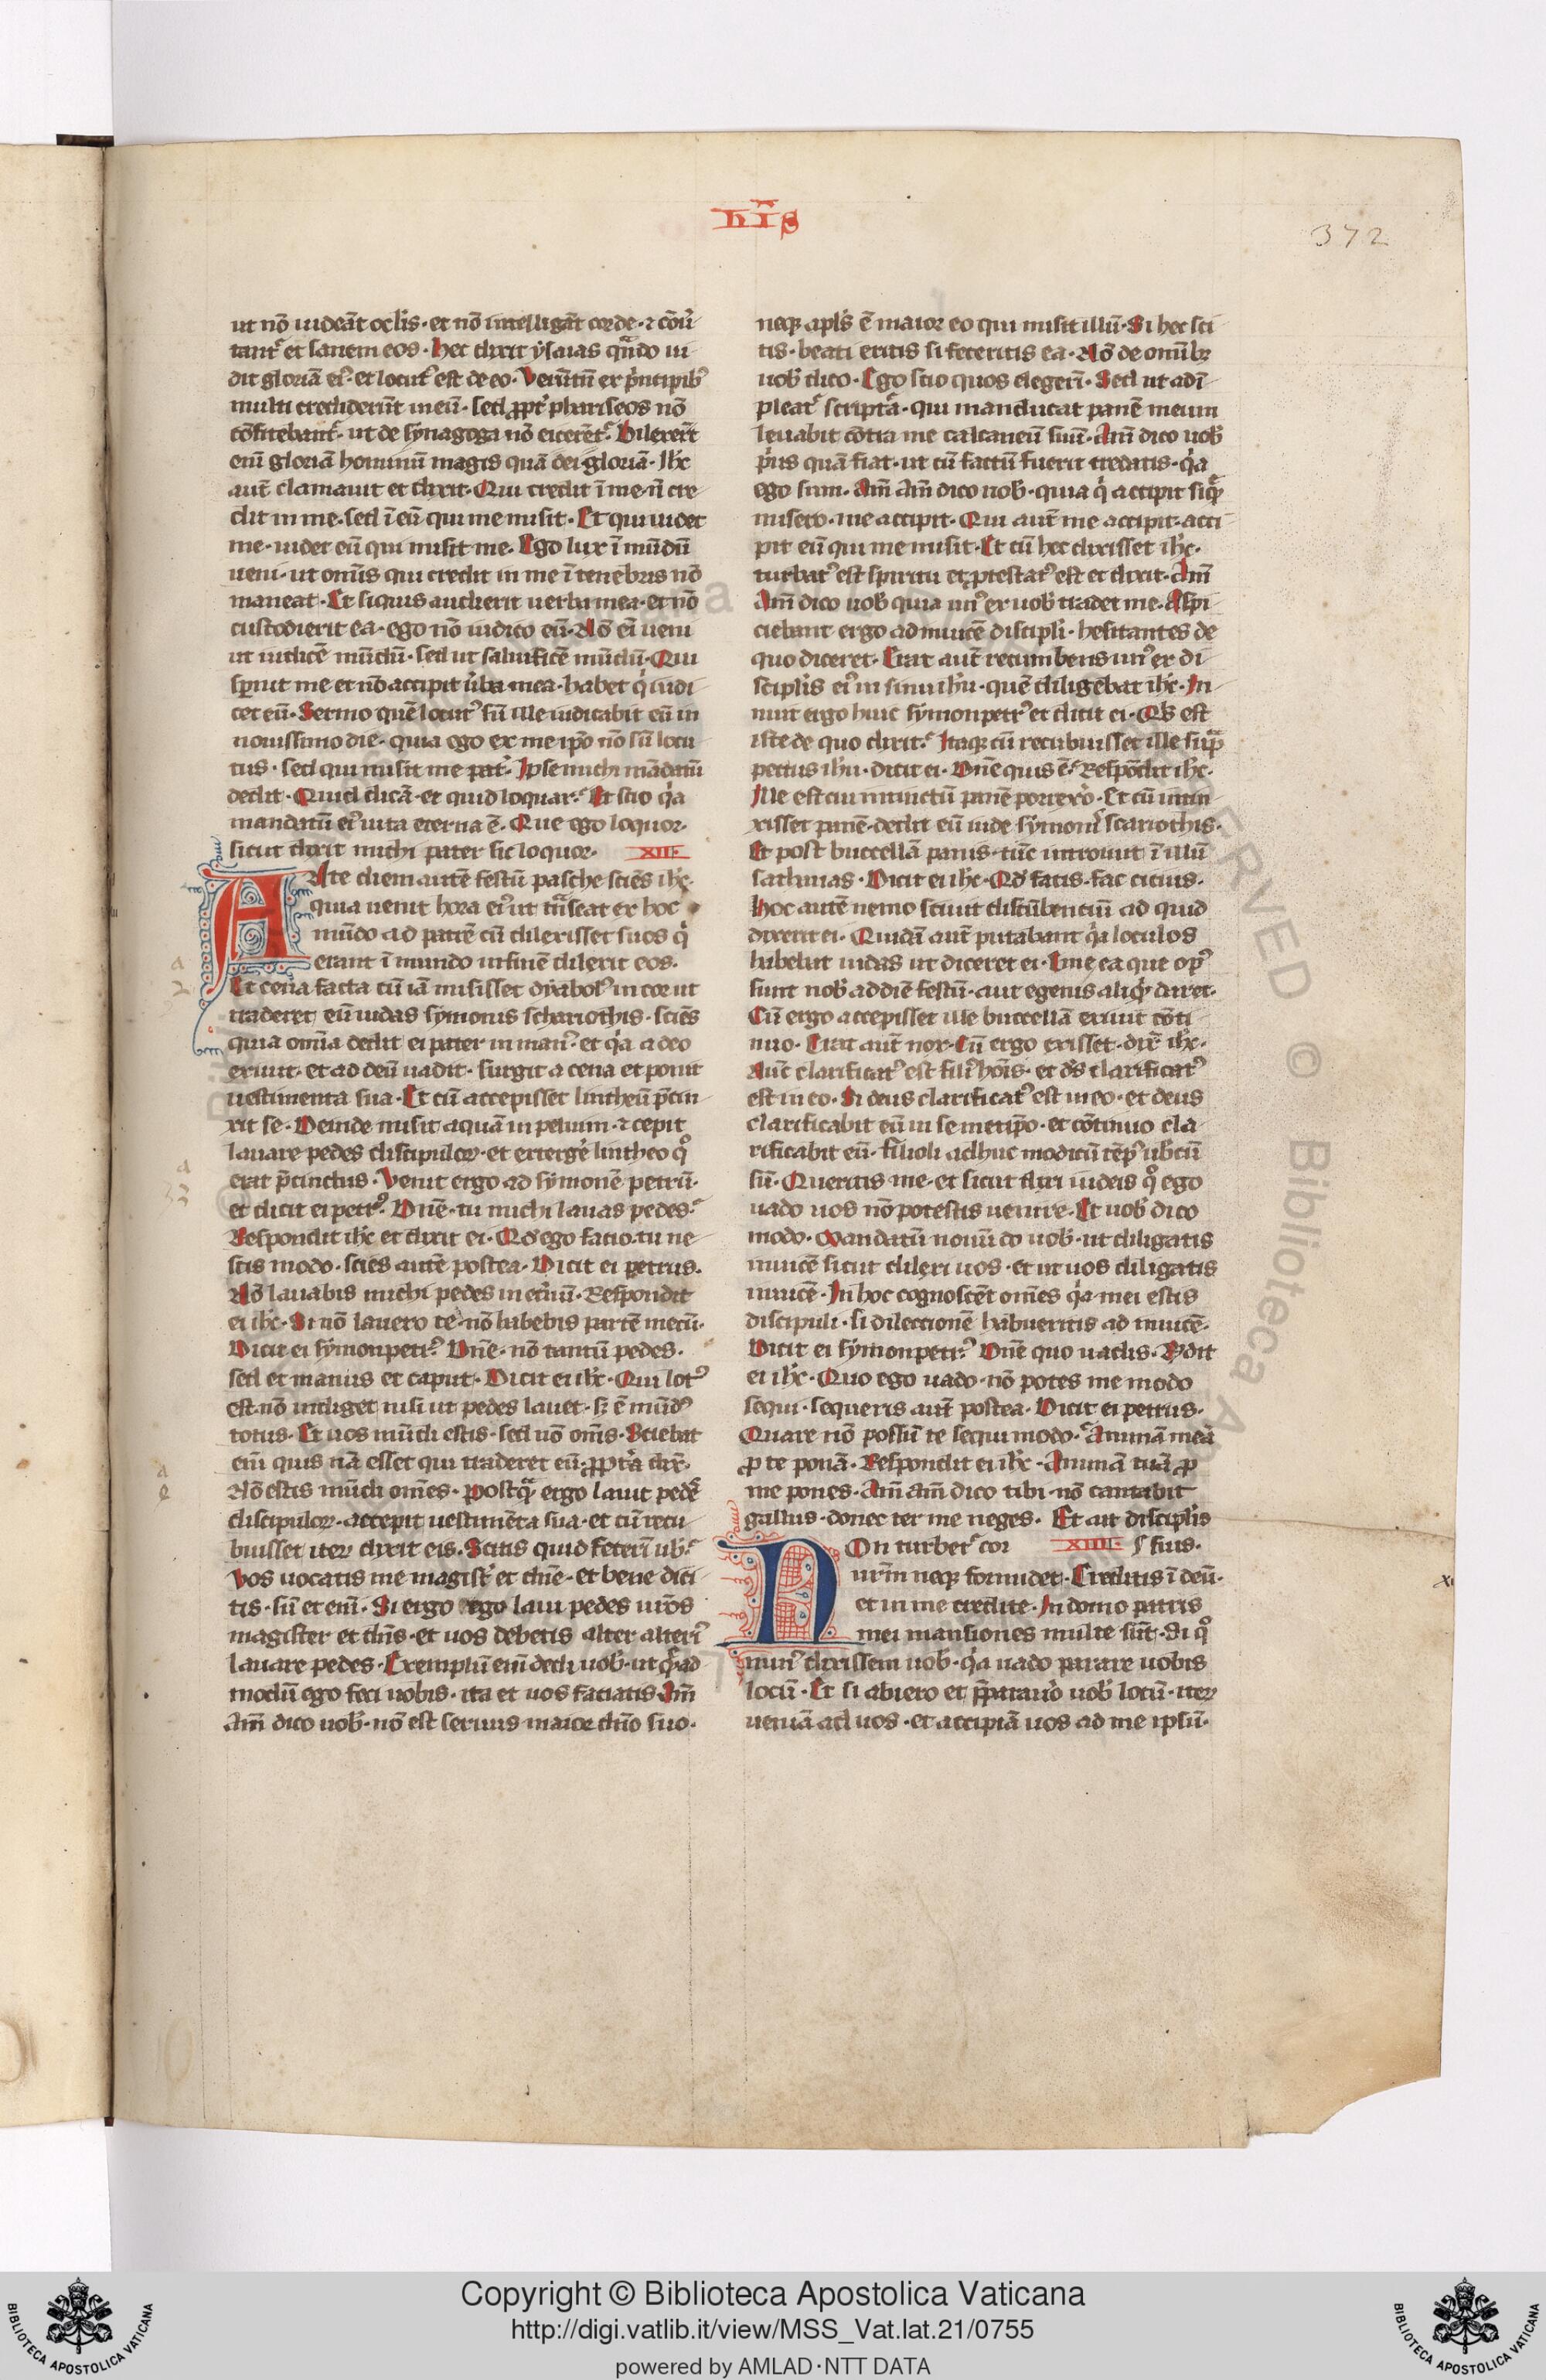 hı̅s
372
ut nō uideāt oclis · et nō intelligāt corde · ⁊ cōu̾
tant᷑ et sanem eos · Hec dixit ysaias qn̄do ui
dit gloriā ei᷒ · et locut᷒ est de eo · Verūtn̄ ex p̾ncipib᷒
multi crediderūt in eū · sed ꝓpt̾ phariseos nō
cōfitebant᷑ · ut de synagoga nō eicerēt᷑ · Dilexer̄t
eni̅ gloriā hominū magis quā dei gloriā · Ih̅c
aut̄ clamauit et dixit · Qui credit ī me · n̄ cre
dit in me · sed ī eū qui me misit · Et qui uidet
me · uidet eū qui misit me · Ego lux ī mūdū
ueni · ut om̄is qui credit in me ī tenebris nō
maneat · Et siquis audierit uerba mea · et nō
custodierit ea · ego nō iudico eū · Nō ei̅ ueni
ut iudicē mūdū · sed ut saluificē mūdū · Qui
sp̲nit me et nō accipit u̾ba mea · habet q̇ iudi
cet eū · Sermo quē locut᷒ sū ille iudicabit eū in
nouissimo die · quia ego ex me ip̄o nō sū locu
tus · sed qui misit me pat̾ · Ipse michi mādatū
dedit · Quid dicā · et quid loquar · Et scio q̇a
mandatū ei᷒ uita eterna ē · Que ego loquor ·
sicut dixit michi pater sic loquor · XIII·
ANte diem autē festū pasche sciēs ih̅c ·
quia uenit hora ei᷒ ut trāseat ex hoc
mūdo ad patrē cū dilexisset suos q̇
erant ī mundo in finē dilexit eos ·
Et cena facta cū iā misisset dyabol᷒ in cor ut
traderet eū iudas symonis schariothis · sciēs
quia om̄ia dedit ei pater in man᷒ · et q̇a a deo
exiuit · et ad deū uadit · surgit a cena et ponit
uestimenta sua · Et cū accepisset lintheū p̄cin
xit se · Deinde misit aquā in peluim · ⁊ cepit
lauare pedes discipuloꝝ · et exterge̾ lintheo qº
erat p̄cinctus · Venit ergo ad symonē petrū ·
et dicit ei petr᷒ · Dn̄e · tu michi lauas pedes ·
Respondit ih̅c et dixit ei · Qd̾ ego facio · tu ne
scis modo · scies autē postea · Dicit ei petrus ·
Nō lauabis michi pedes in et̾nū · Respondit
ei ih̅c · Si nō lauero te · nō habebis partē mecū ·
Dicit ei symon petr᷒ · Dn̄e · nō tantū pedes ·
sed et manus et caput · Dicit ei ih̅c · Qui lot᷒
est · nō indiget nisi ut pedes lauet · sȝ ē mūd᷒
totus · Et uos mūdi estis · sed nō om̄s · Sciebat
eni̅ quis nā esset qui traderet eū · ꝓpt̾a dix̄ ·
Nō estis mūdi om̄es · Postq̄ ergo lauit pedē
discipuloꝝ · accepit uestimēta sua · et cū recu
buisset iteꝝ dixit eis · Scitis quid fecerī ub̾ ·
Vos uocatis me magist̾ et dn̄e · et bene dici
tis · sū et eni̅ · Si ergo ego laui pedes ur̄os
magister et dn̄s · et uos debetis alter alteri᷒
lauare pedes · Exemplū eni̅ dedi uob̾ · ut q̄ad
modū ego feci uobis · ita et uos faciatis · Am̄
Am̄ dico uob̾ · nō est seruus maior dn̄o suo ·
neqꝫ apl̄s ē maior eo qui misit illū · Si hec sci
tis · beati eritis si feceritis ea · Nō de omībꝫ
uob̾ dico · Ego scio quos elegerī · Sed ut adī
pleat᷑ scriptā · qui manducat panē meum
leuabit cōtra me calcaneū suū · Am̄ dico uob̾
p̾us quā fiat · ut cū factū fuerit credatis · q̇a
ego sum · Am̄ Am̄ dico uob̾ · quia q̇ accipit siq̄
misero · me accipit · Qui aut̄ me accipit · acci
pit eū qui me misit · Et cū hec dixisset ih̅c ·
turbat᷒ est spiritu et ꝓtestat᷒ est et dixit · Am̄
Am̄ dico uob̾ quia un᷒ ex uob̾ tradet me · Aspi
ciebant ergo ad inuicē discipl̄i · hesitantes de
quo diceret · Erat aut̄ recumbens un᷒ ex di
scipl̄is ei᷒ in sinu ih̅u · quē diligebat ih̅c · In
nuit ergo huic symon petr᷒ et dicit ei · Qis est
iste de quo dixit · Itaqꝫ cū recubuisset ille sup̄
pectus ih̅u · dicit ei · Dn̄e quis ē · Respōdit ih̅c ·
Ille est cui intinctū panē porrexo̾ · Et cū intin
xisset panē · dedit eū iude symoni᷒ scariothis ·
Et post buccellā panis · tūc introiuit ī illū
sathanas · Dicit ei ih̅c · Qd̾ facis · fac citius ·
Hoc autē nemo sciuit discūbentiū ad quid
dixerit ei · Quidā aut̄ putabant q̇a loculos
habebat iudas ut diceret ei · Eme ea que op᷒
sunt nob̾ ad diē festū · aut egenis aliqͥd daret ·
Cū ergo accepisset ille buccellā exiuit cōti
nuo · Erat aut̄ nox · Cū ergo exisset · dix̄ ih̅c ·
Nūc clarificat᷒ est fili᷒ hōis · et dš clarificat᷒
est in eo · Si deus clarificat᷒ est in eo · et deus
clarificabit eū in semetip̄o · et cōtinuo cla
rificabit eū · Filioli adhuc modicū tēp᷒ ub̾cū
sū · Queritis me · et sicut dixi iudeis qº ego
uado uos nō potestis uenire · Et uob̾ dico
modo · Mandatū nouū do uob̾ · ut diligatis
inuicē sicut dilexi uos · et ut uos diligatis
inuicē · In hoc cognoscēt om̄es q̇a mei estis
discipuli · si dilectionē habueritis ad inuicē ·
Dicit ei symon petr᷒ · Dn̄e quo uadis · Rn̄dit
ei ih̅c · Quo ego uado · nō potes me modo
sequi · sequeris aut̄ postea · Dicit ei petrus ·
Quare nō possū te sequi modo · Animā meā
ꝓ te ponā · Respondit ei ih̅c · Animā tuā ꝓ
me pones · Am̄ am̄ dico tibi · nō cantabit
gallus · donec ter me neges · Et ait discipl̄is
NOn turbet᷑ cor XIIII· suis ·
ur̄m neqꝫ formidet · Creditis ī deū ·
et in me credite · In domo patris
mei mansiones multe sūt · Si qº
min᷒ dixissem uob̾ · q̇a uado parare uobis
locū · Et si abiero et p̄parauo̾ uob̾ locū · iteꝝ
ueniā ad uos · et accipiā uos ad me ipsū ·
Copyright © Biblioteca Apostolica Vaticana
http://digi.vatlib.it/view/MSS_Vat.lat.21/0755
powered by AMLAD·NTT DATA
BIBLIOTECA APOSTOLICA VATICANA
BIBLIOTECA APOSTOLICA VATICANA